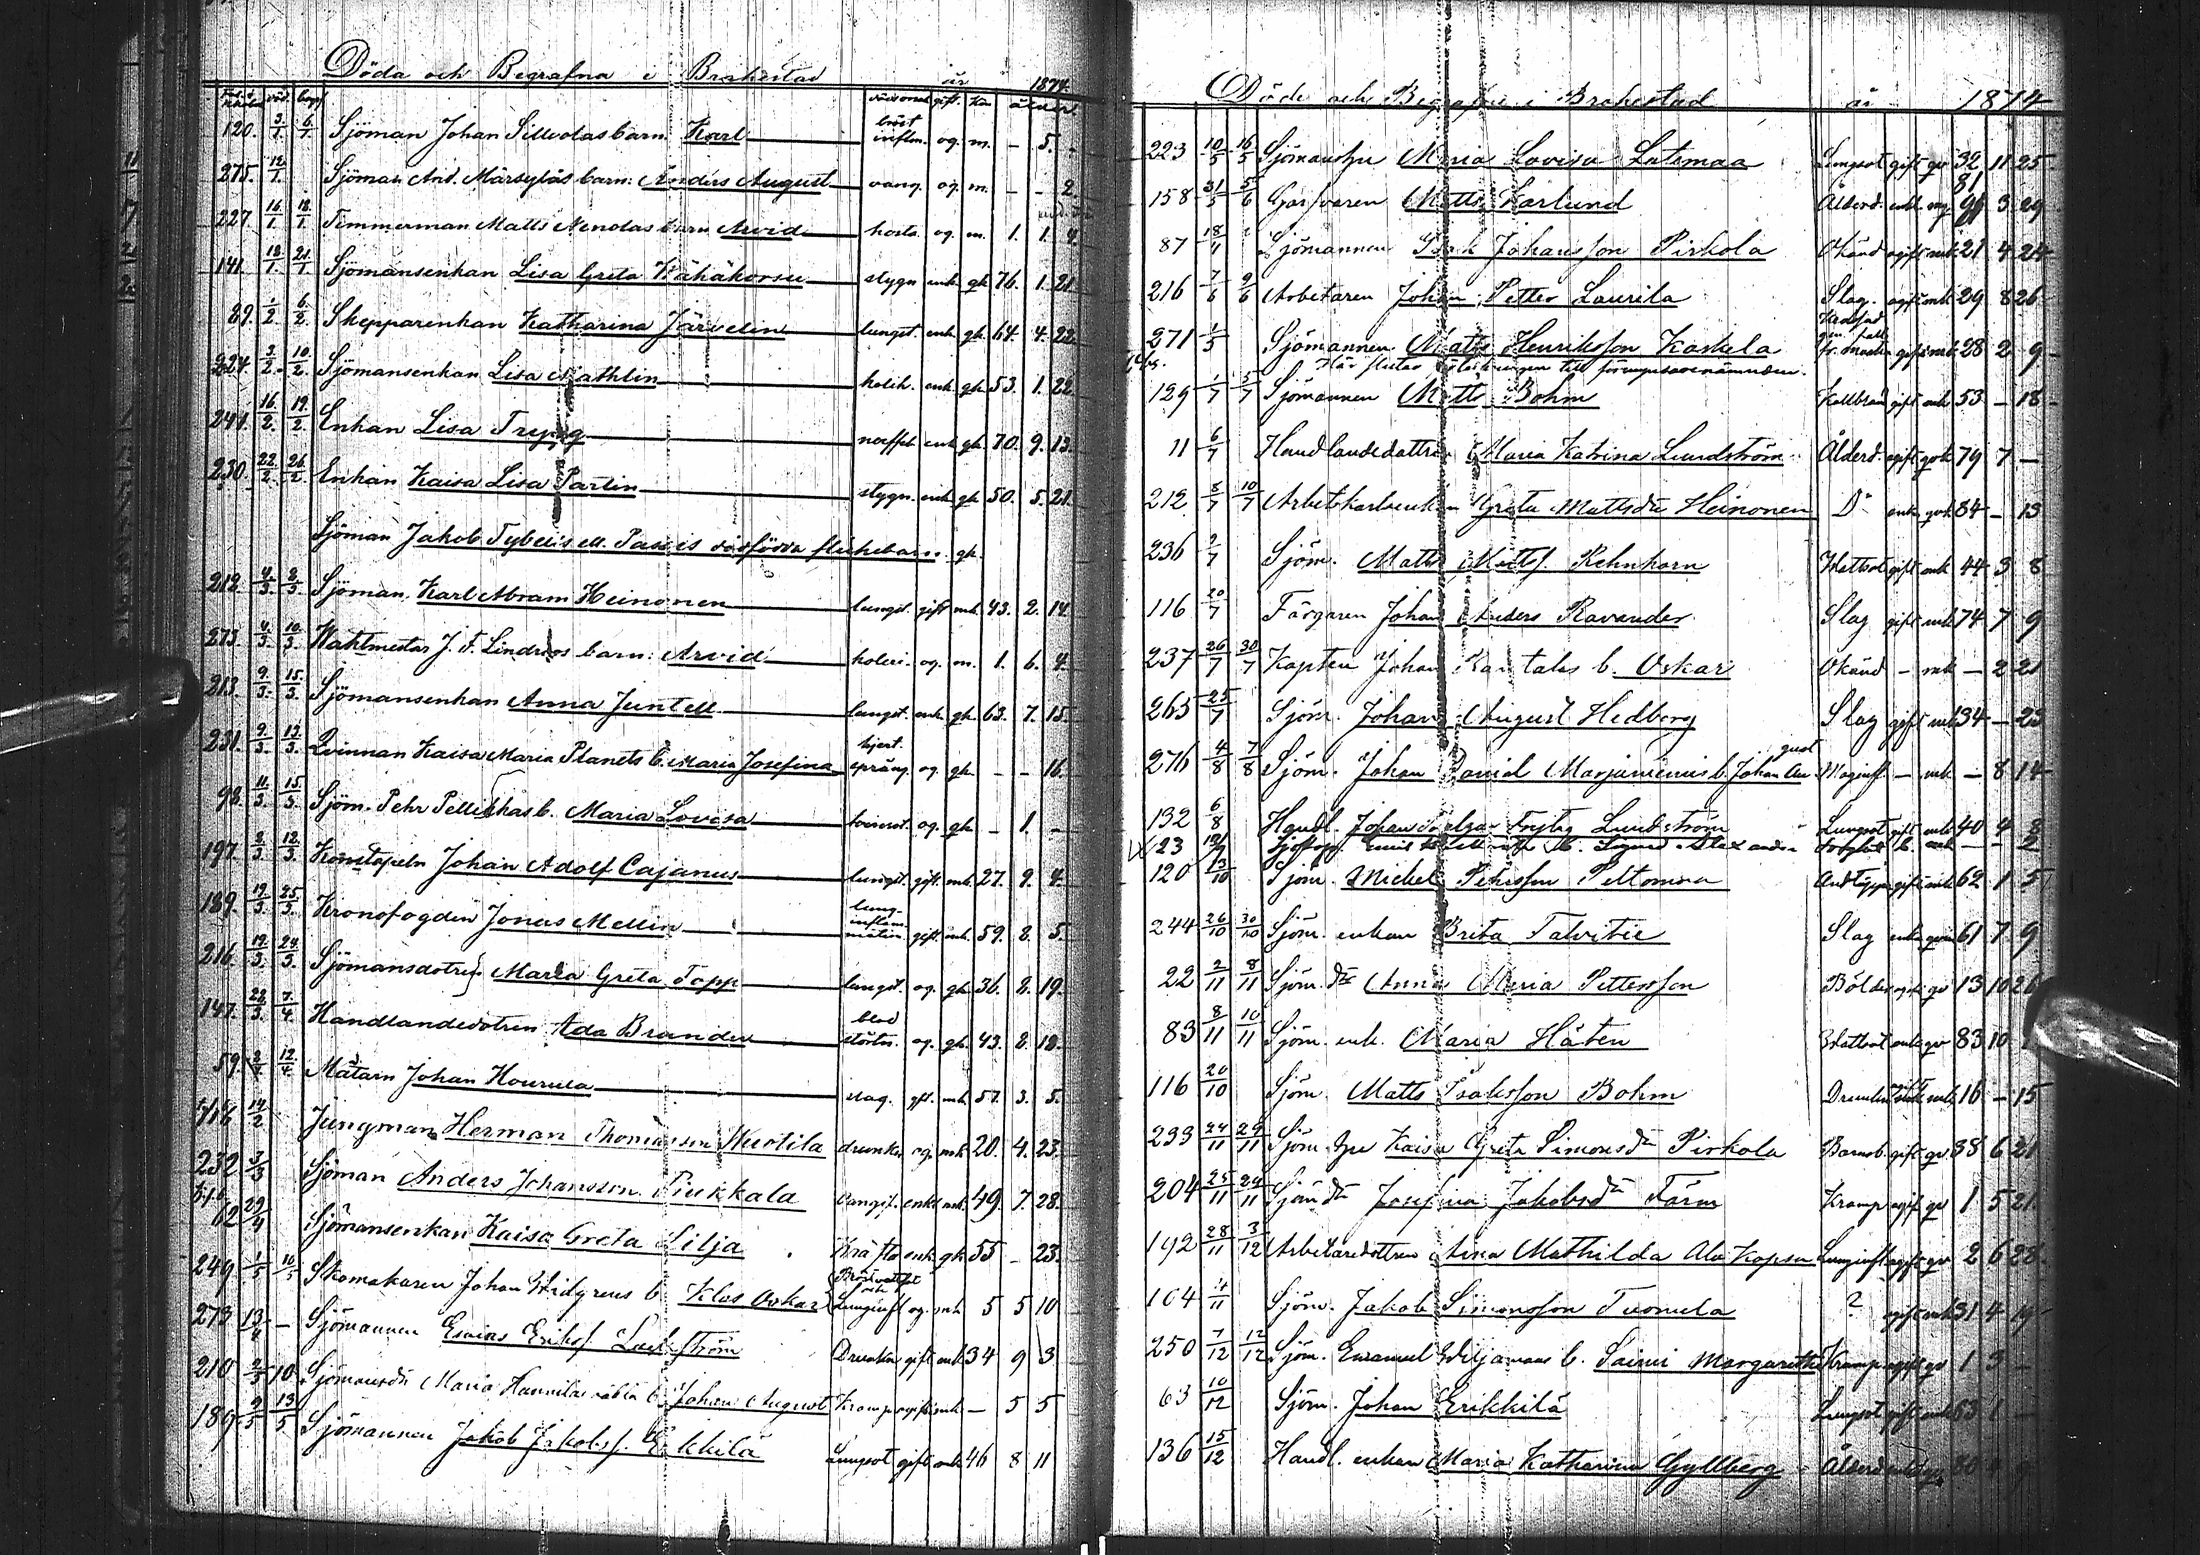 Döda och Begrafna i Brahestad år 1874.
död begr. gift. kön ålder
120. 3/1 6/1 Sjöman Johan Sillvolas barn. Karl bröst inflm. og. m. – 5. –
275. 12/1 Sjöman And. Märsyläs barn: Anders August vang. og. m. – – 2
227. 16/1 18/1 Timmerman Matts Nenolas barn Arvid hosta og. m. 1. 1. 4.
141. 18/1 21/1 Sjömansenkan Lisa Greta Kähäkorsu stygn enk. qk. 76. 1. 21.
89. 1/2 6/2 Skepparenkan Katharina Järvelin lungst. enk. qk. 64. 4. 22
224. 3/2 10/2 Sjömansenkan Lisa Mathlin kolik. enk. qk. 53. 1. 22
241. 16/2 19/2 Enkan Lisa Trygg enk. qk. 70. 9. 13.
230. 22/2 26/2 Enkan Kaisa Lisa Partin stygn. enk. qk. 50. 5. 21.
Sjöman Jakob dödfödda flickebarn. qk.
212. 4/3 8/3 Sjöman Karl Abram Heinonen lungst. gift mk. 43. 2. 14.
273. 4/3 10/3 Waktmestar J. F. Lindroos barn: Arvid koleri. og. m. 1. 6. 4.
213. 9/3 15/3 Sjömansenkan Anna Juntell lungst. enk. qk. 63. 7. 15.
231. 9/3 13/3 Qvinnan Kaisa Maria Planets b. Maria Josefina hjert. språng. og. qk. – – 16.
98. 11/3 15/3 Sjöm. Pehr Pellikkas b. Maria Lovisa og. qk. – 1. –
197. 8/3 12/3 Konstapeln Johan Adolf Cajanus lungst. gift. mk. 27. 9. 4.
189. 19/3 25/3 Kronofogden Jonas Mellin lung-inflammation gift. mk. 59. 8. 5.
216. 19/3 24/3 Sjömansdotren Maria Greta Topp lungst. og. qk. 36. 8. 19.
147. 28/3 7/4 Handlandedotren Ada Brander blod störtn. og. qk. 43. 8. 18.
59. 12/4 Mätarn Johan Hourula slag. gft. mk. 57. 3. 5.
14/2 Jungman Herman Thomasson Wuotila drunkn. og. mk. 20. 4. 23.
232 3/3 Sjöman Anders Johansson Piukkala enkl. mk. 49. 7. 28.
62 29/4 Sjömansenkan Kaisa Greta Lilja Kräfta enk. qk. 55 – 23.
249 1/5 10/5 Skomakaren Johan Widgrens b. Klas Oskar Bröstvattst och Lunginfl og. mk 5 5 10
273 13/4 – Sjömannen Esaias Eriksf. Lackström Drunkn gift mk 34 9 3
210 2/5 10 Sjömansdtr Maria Hannila oäkta b. Johan August Kramp ogift mk – 5 5
189 9/5 13/5 Sjömannen Jakob Jakobsf. Erkkilä Lungsot gift mk 46 8 11
Döde och Begrafne i Brahestad år 1874
223 10/5 16/5 Sjömanshu Maria Lovisa Latomaa Lungsot gift qv 32 11 25
158 31/5 5/6 Garfvaren Matts Karlund Ålderd. enkl. 81 3 29
87 18/1 Sjömannen Isak Johansson Pirkola Okänd ogift mk 21 4 24
216 7/6 9/6 Arbetaren Johan Petter Laurila Slag. ogift mk 29 8 26
271 1/5 Sjömannen Matts Henriksson Kaskela gift mk 28 2 9
129 1/7 5/7 Sjömannen Matts Bohm Kallbrand gift mk 53 – 18
11 6/7 Handlandedottren Maria Katrina Lundström Ålderd. ogift qvk 79 7 –
212 8/7 10/7 Arbetskarlsenkan Greta Mattsdtr Heinonen Do enk qvk 84 – 13
236 2/7 Sjöm. Matts Mattsf. Rehnhorn Wattsot gift mk 44 3 8
116 20/7 Färgaren Johan Anders Ravander Slag gift mk 74 7 9
237 26/7 30/7 Kapten Johan Rantalas b. Oskar Okänd – mk – 2 21
263 25/7 Sjöm. Johan August Hedberg Slag gift mk 34 – 23
276 4/8 7/8 Sjöm. Johan Daniel Marjaniemis b. Johan August Maginfl. – mk – 8 14
132 6/8 Handl. Johan Lundström Lungsot gift mk 40 4 8
23 Emil b. Sigurd Alexander mk – – 2
120 13/10 Sjöm. Mickel Pehrsson Peltomaa gift mk 62 1 5
244 26/10 30/10 Sjöm. enkan Brita Talvitie Slag enk qvk 61 7 9
22 2/11 8/11 Sjöm. dtr Anna Maria Pettersson Bölder ogift qv 13 10 26
83 8/11 10/11 Sjöm. enk. Maria Håten Wattsot enk qv 83 10
116 20/10 Sjöm. Matts Isaksson Bohm mk 16 – 15
233 24/11 29/11 Sjöm. hu Kaisa Greta Simonsdtr Pirkola Barnsb. gift qv. 38 6 21
204 25/11 29/11 Sjöm dtr Josefina Jakobsdtr Färm Kramp ogift qv 1 5 21.
192 28/11 3/12 Arbetaredottren Anna Mathilda Ala Kopsa Lunginfl ogift qv 2 6 28
104 4/11 Sjöm. Jakob Simonsson Tuomela ? gift mk 31 4 19
250 7/12 12/12 Sjöm. Emanuel Viljamaas b. Saimi Margaretha Kramp ogift qv 1 3 –
63 10/12 Sjöm. Johan Erikkilä Lungsot gift mk 53 1 –
136 15/12 Handl. enkan Maria Katharina Gyllberg Ålderd.